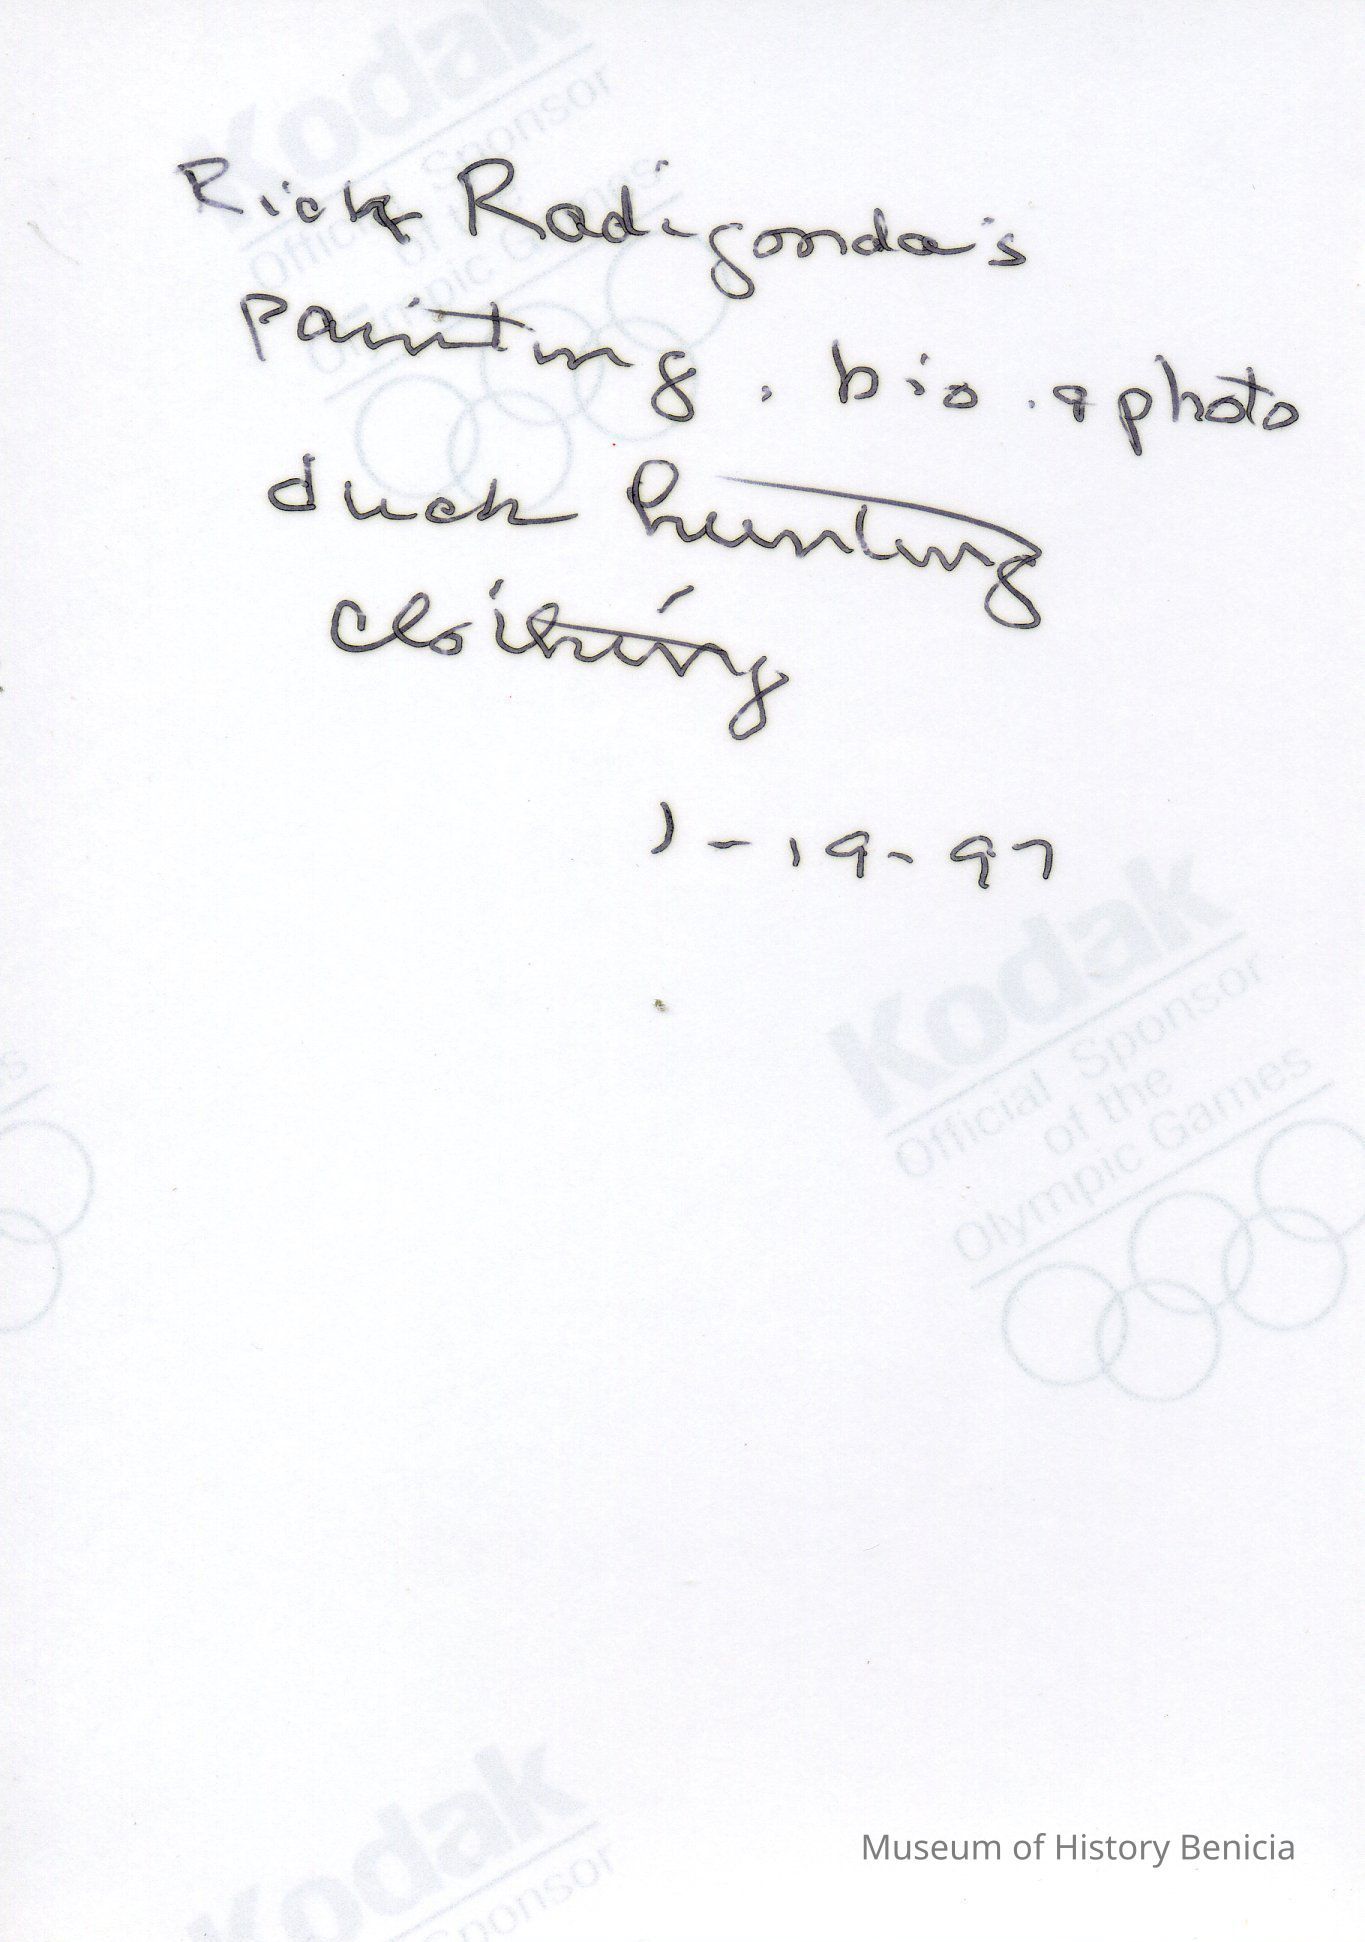 Kodak
Official Sponsor
of the
Olympic Games
Rick Radigonda's
painting, bio. & photo
duck hunting
clothing
1-19-97
Kodak
Official Sponsor
of the
Olympic Games
s
Kodak
Sponsor
Museum of History Benicia